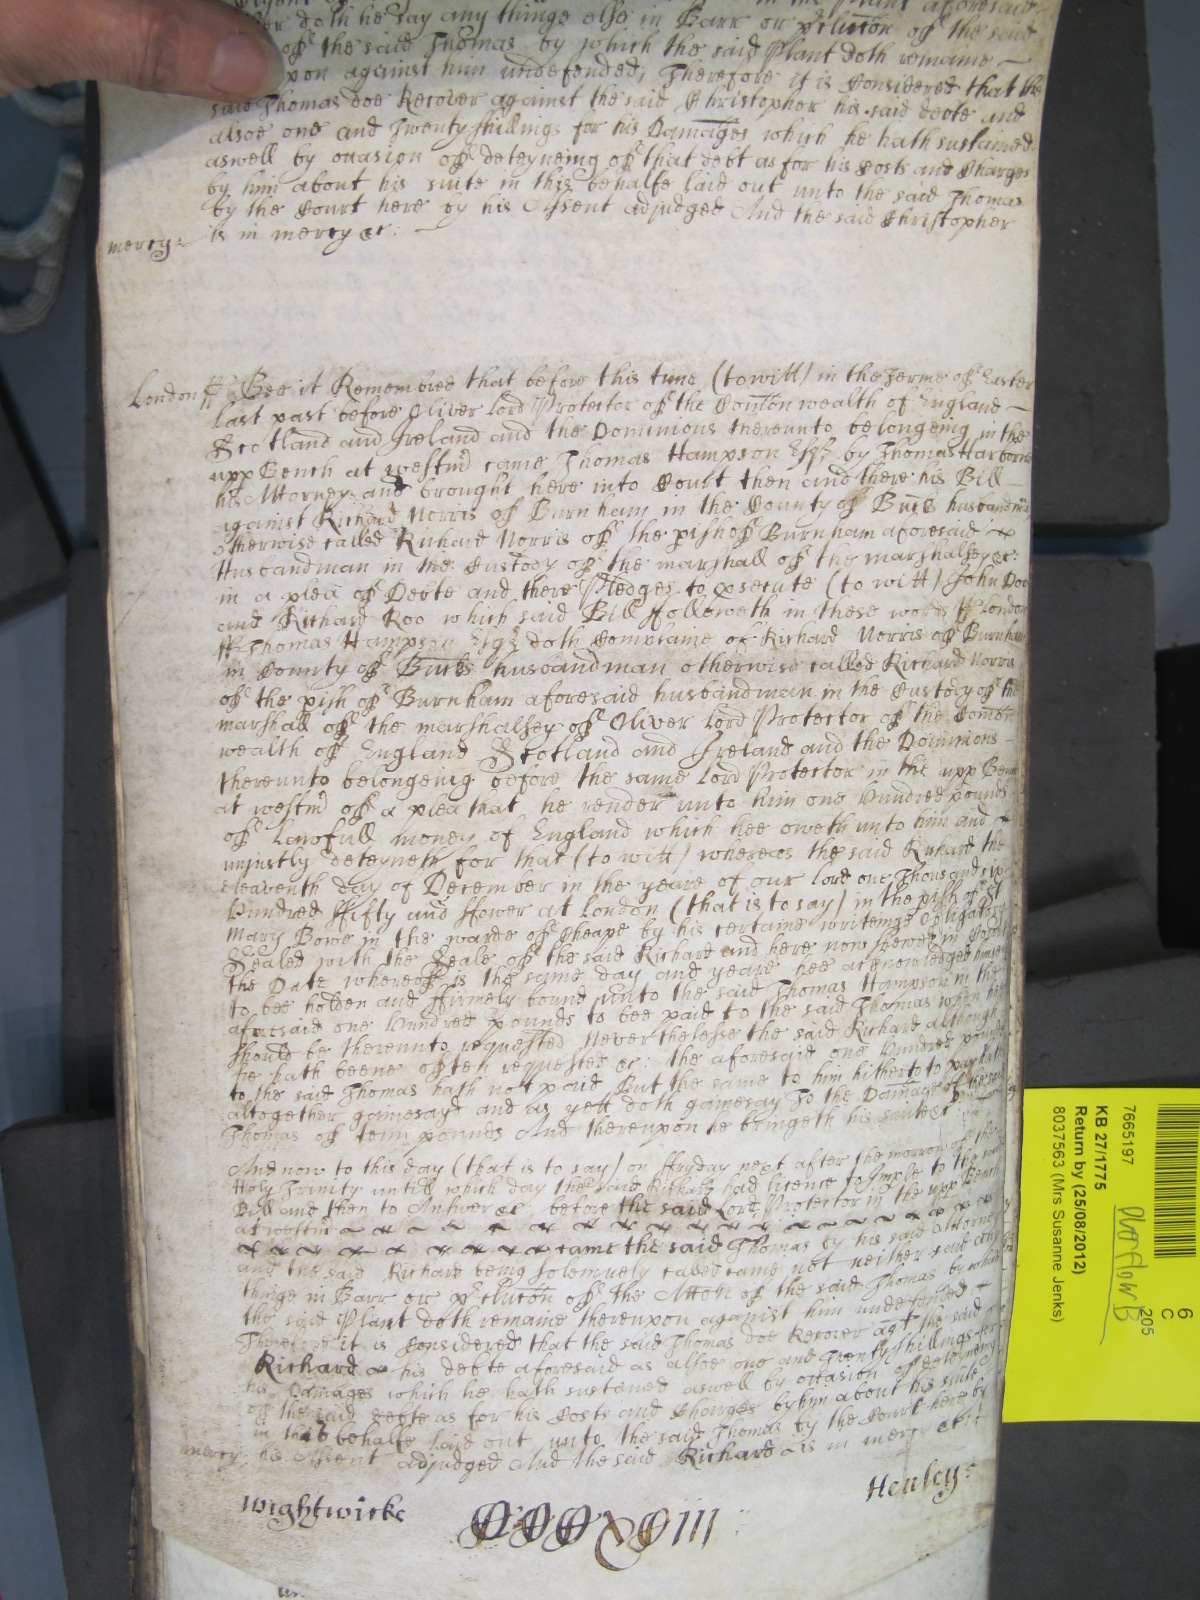 in the Plant aforesaid
doth he say any things else in Barr or p'clucon of the said
of the said Thomas by which the said Plant doth remaine
upon against him undefended; Therefore it is Considered that the
said Thomas doe Recover against the said Christopher his said debte and
alsoe one and Twenty shillings for his Damages which he hath susteined
aswell by occasion of deteyneing of that debt as for his Costs and Charges
by him about his suite in this behalfe laid out unto the said Thomas
by the Court here by his Assent adjudged And the said Christopher
mercy: is in mercy &c:
London ff Bee it Remembred that before this time (to witt) in the Terme of Easter
last past before Oliver Lord Protector of the Comon wealth of England
Scotland and Ireland and the Dominions thereunto belongeing in the
upp Bench at westm' came Thomas Hampson Esqr by Thomas Harborne
his Attorney and brought here into Court then and there his Bill
against Richard Norris of Burnham in the County of Bucks husbandman
otherwise called Richard Norris of the pish of Burnham aforesaid
Husbandman in the Custody of the marshall of the marshalsey &c:
in a plea of Debte and there Pledges to psecute (to witt) John Doo
and Richard Roo which said Bill followeth in these words ff London
ff Thomas Hampson Esqr doth Complaine of Richard Norris of Burnham
in County of Bucks husbandman otherwise called Richard Norris
of the pish of Burnham aforesaid husbandman in the Custody of the
marshall of the marshalsey of Oliver Lord Protector of the Comon
wealth of England Scotland and Ireland and the Dominions
thereunto belongeing before the same Lord Protector in the upp Bench
at westm' of a plea that he render unto him one hundred pounds
of Lawfull money of England which hee oweth unto him and
unjustly deteyneth for that (to witt) whereas the said Richard the
eleaventh day of December in the yeare of our Lord one Thousand six
hundred ffifty and ffower at London (that is to say) in the pish of St
Mary Bowe in the warde of Cheape by his certaine writeinge obligatory
Sealed with the Seale of the said Richard and here now shewed in Court
the Date whereof is the same day and yeare hee acknowledged himselfe
to bee holden and ffirmely bound unto the said Thomas Hampson in the
aforesaid one hundred pounds to bee paid to the said Thomas when hee
should be thereunto requested Neverthelesse the said Richard although
he hath beene often requested &c: the aforesaid one hundred pounds
to the said Thomas hath not paid But the same to him hitherto to pay hath
altogether gainesayd and as yett doth gainesay To the Damage of the said
Thomas of tenn pounds And thereupon he bringeth his suite &c
And now to this day (that is to say) on ffryday next after the morrow of the
Holy Trinity untill which day the said Richard had licence to Imple to the said
Bill and then to Answer &c: before the said Lord Protector in the upp Bench
at westm'
came the said Thomas by his said Attorney
and the said Richard being solemnely called came not neither said any
thinge in Barr or p'clucon of the Accon of the said Thomas by which
the said Plant doth remaine thereupon against him undefended
Therefore it is Considered that the said Thomas doe Recover agt the said
Richard his debte aforesaid as alsoe one and Twenty shillings for
his Damages which he hath susteined aswell by occasion of deteyneing
of the said debte as for his Costs and Charges by him about his suite
in this behalfe laid out unto the said Thomas by the Court here by
mercy his Assent adjudged And the said Richard is in mercy &c
Wightwicke
Henley:
CCCXCIII
7665197
KB 27/1775
Return by (25/08/2012)
8037563 (Mrs Susanne Jenks)
6
C
205